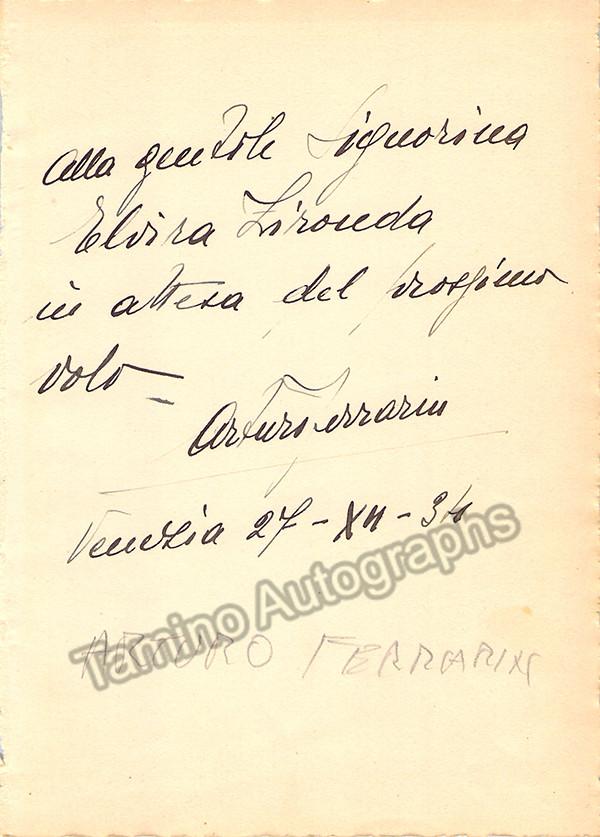 alla gentile Signorina
Elvira Zironda
in attesa del prossimo
volo -
Arturo Ferrarin
Venezia 27 - XII - 34
Tamino Autographs
ARTURO FERRARIN